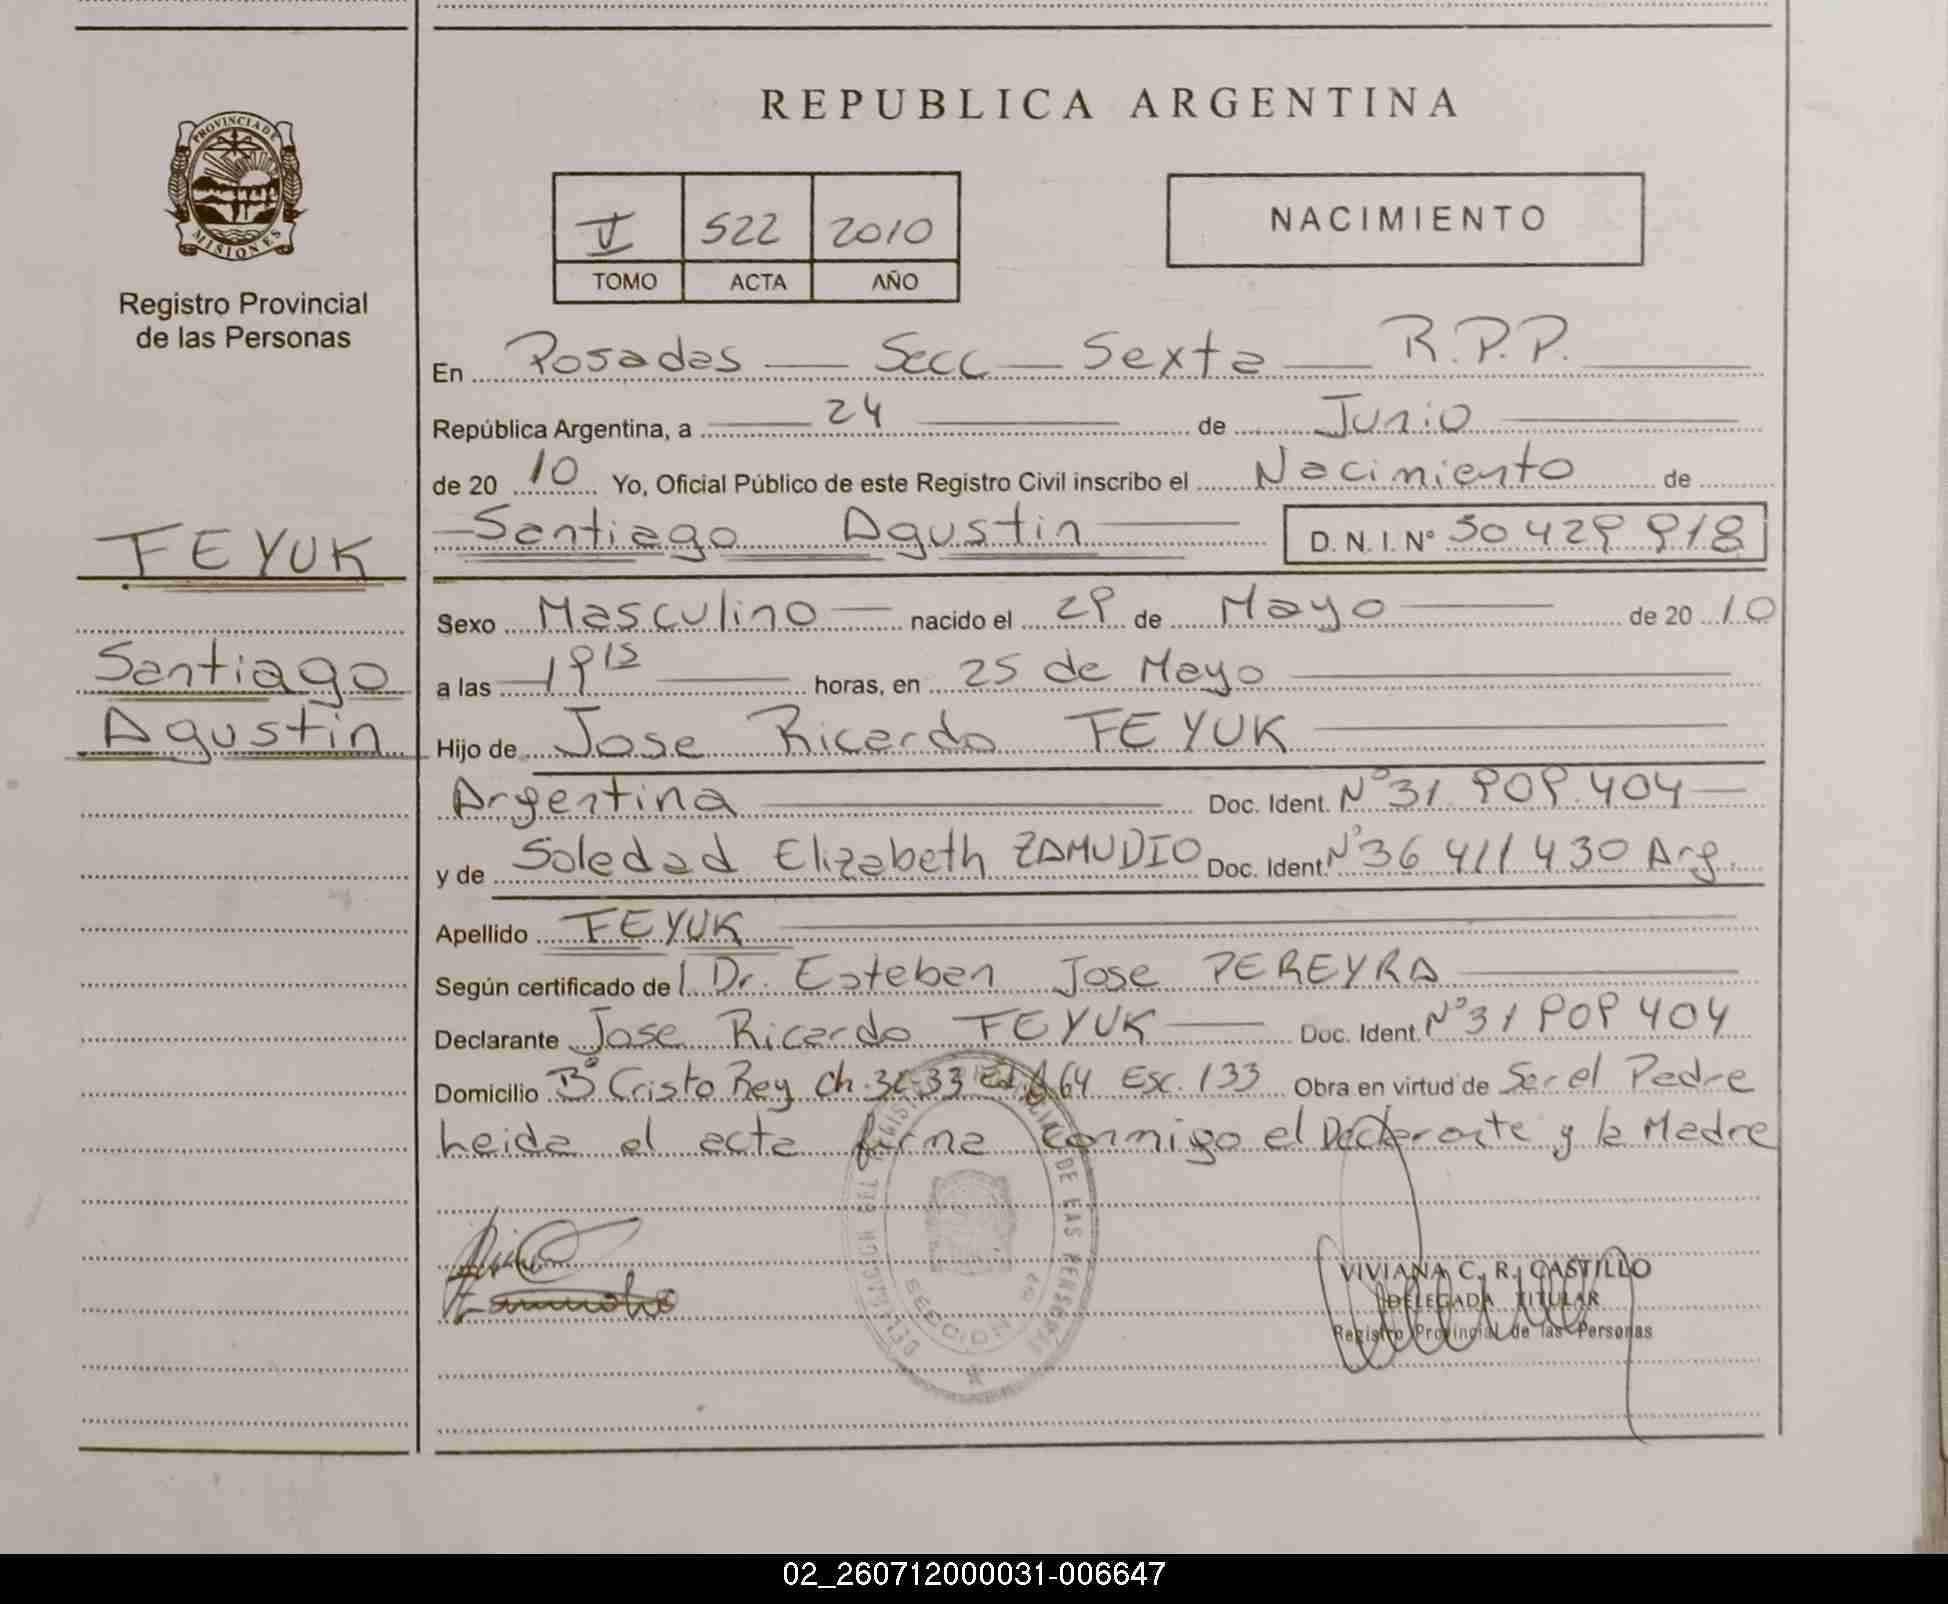 REPUBLICA ARGENTINA
PROVINCIA DE
MISIONES
Registro Provincial
de las Personas
V 522 2010
TOMO ACTA AÑO
NACIMIENTO
En Posadas — Secc — Sexta — R.P.P. —
República Argentina, a — 24 — de Junio —
de 20 10 Yo, Oficial Público de este Registro Civil inscribo el Nacimiento de
— Santiago Agustin — D.N.I.Nº 50 429 918
FEYUK
Santiago
Agustin
Sexo Masculino — nacido el 29 de Mayo — de 20 10
a las — 19 15 — horas, en 25 de Mayo —
Hijo de Jose Ricardo FEYUK —
Argentina — Doc. Ident. Nº 31 909 404 —
y de Soledad Elizabeth ZAMUDIO Doc. Ident. Nº 36 411 430 Arg.
Apellido FEYUK —
Según certificado del Dr. Esteban Jose PEREYRA —
Declarante Jose Ricardo FEYUK — Doc. Ident. Nº 31 909 404
Domicilio Bº Cristo Rey Ch. 32-33 Edif 64 Esc. 133 Obra en virtud de Ser el Padre
Leida el acta firma conmigo el Declarante y la Madre
DE LAS PERSONAS
SECCION
VIVIANA C. R. CASTILLO
DELEGADA TITULAR
Registro Provincial de las Personas
02_260712000031-006647